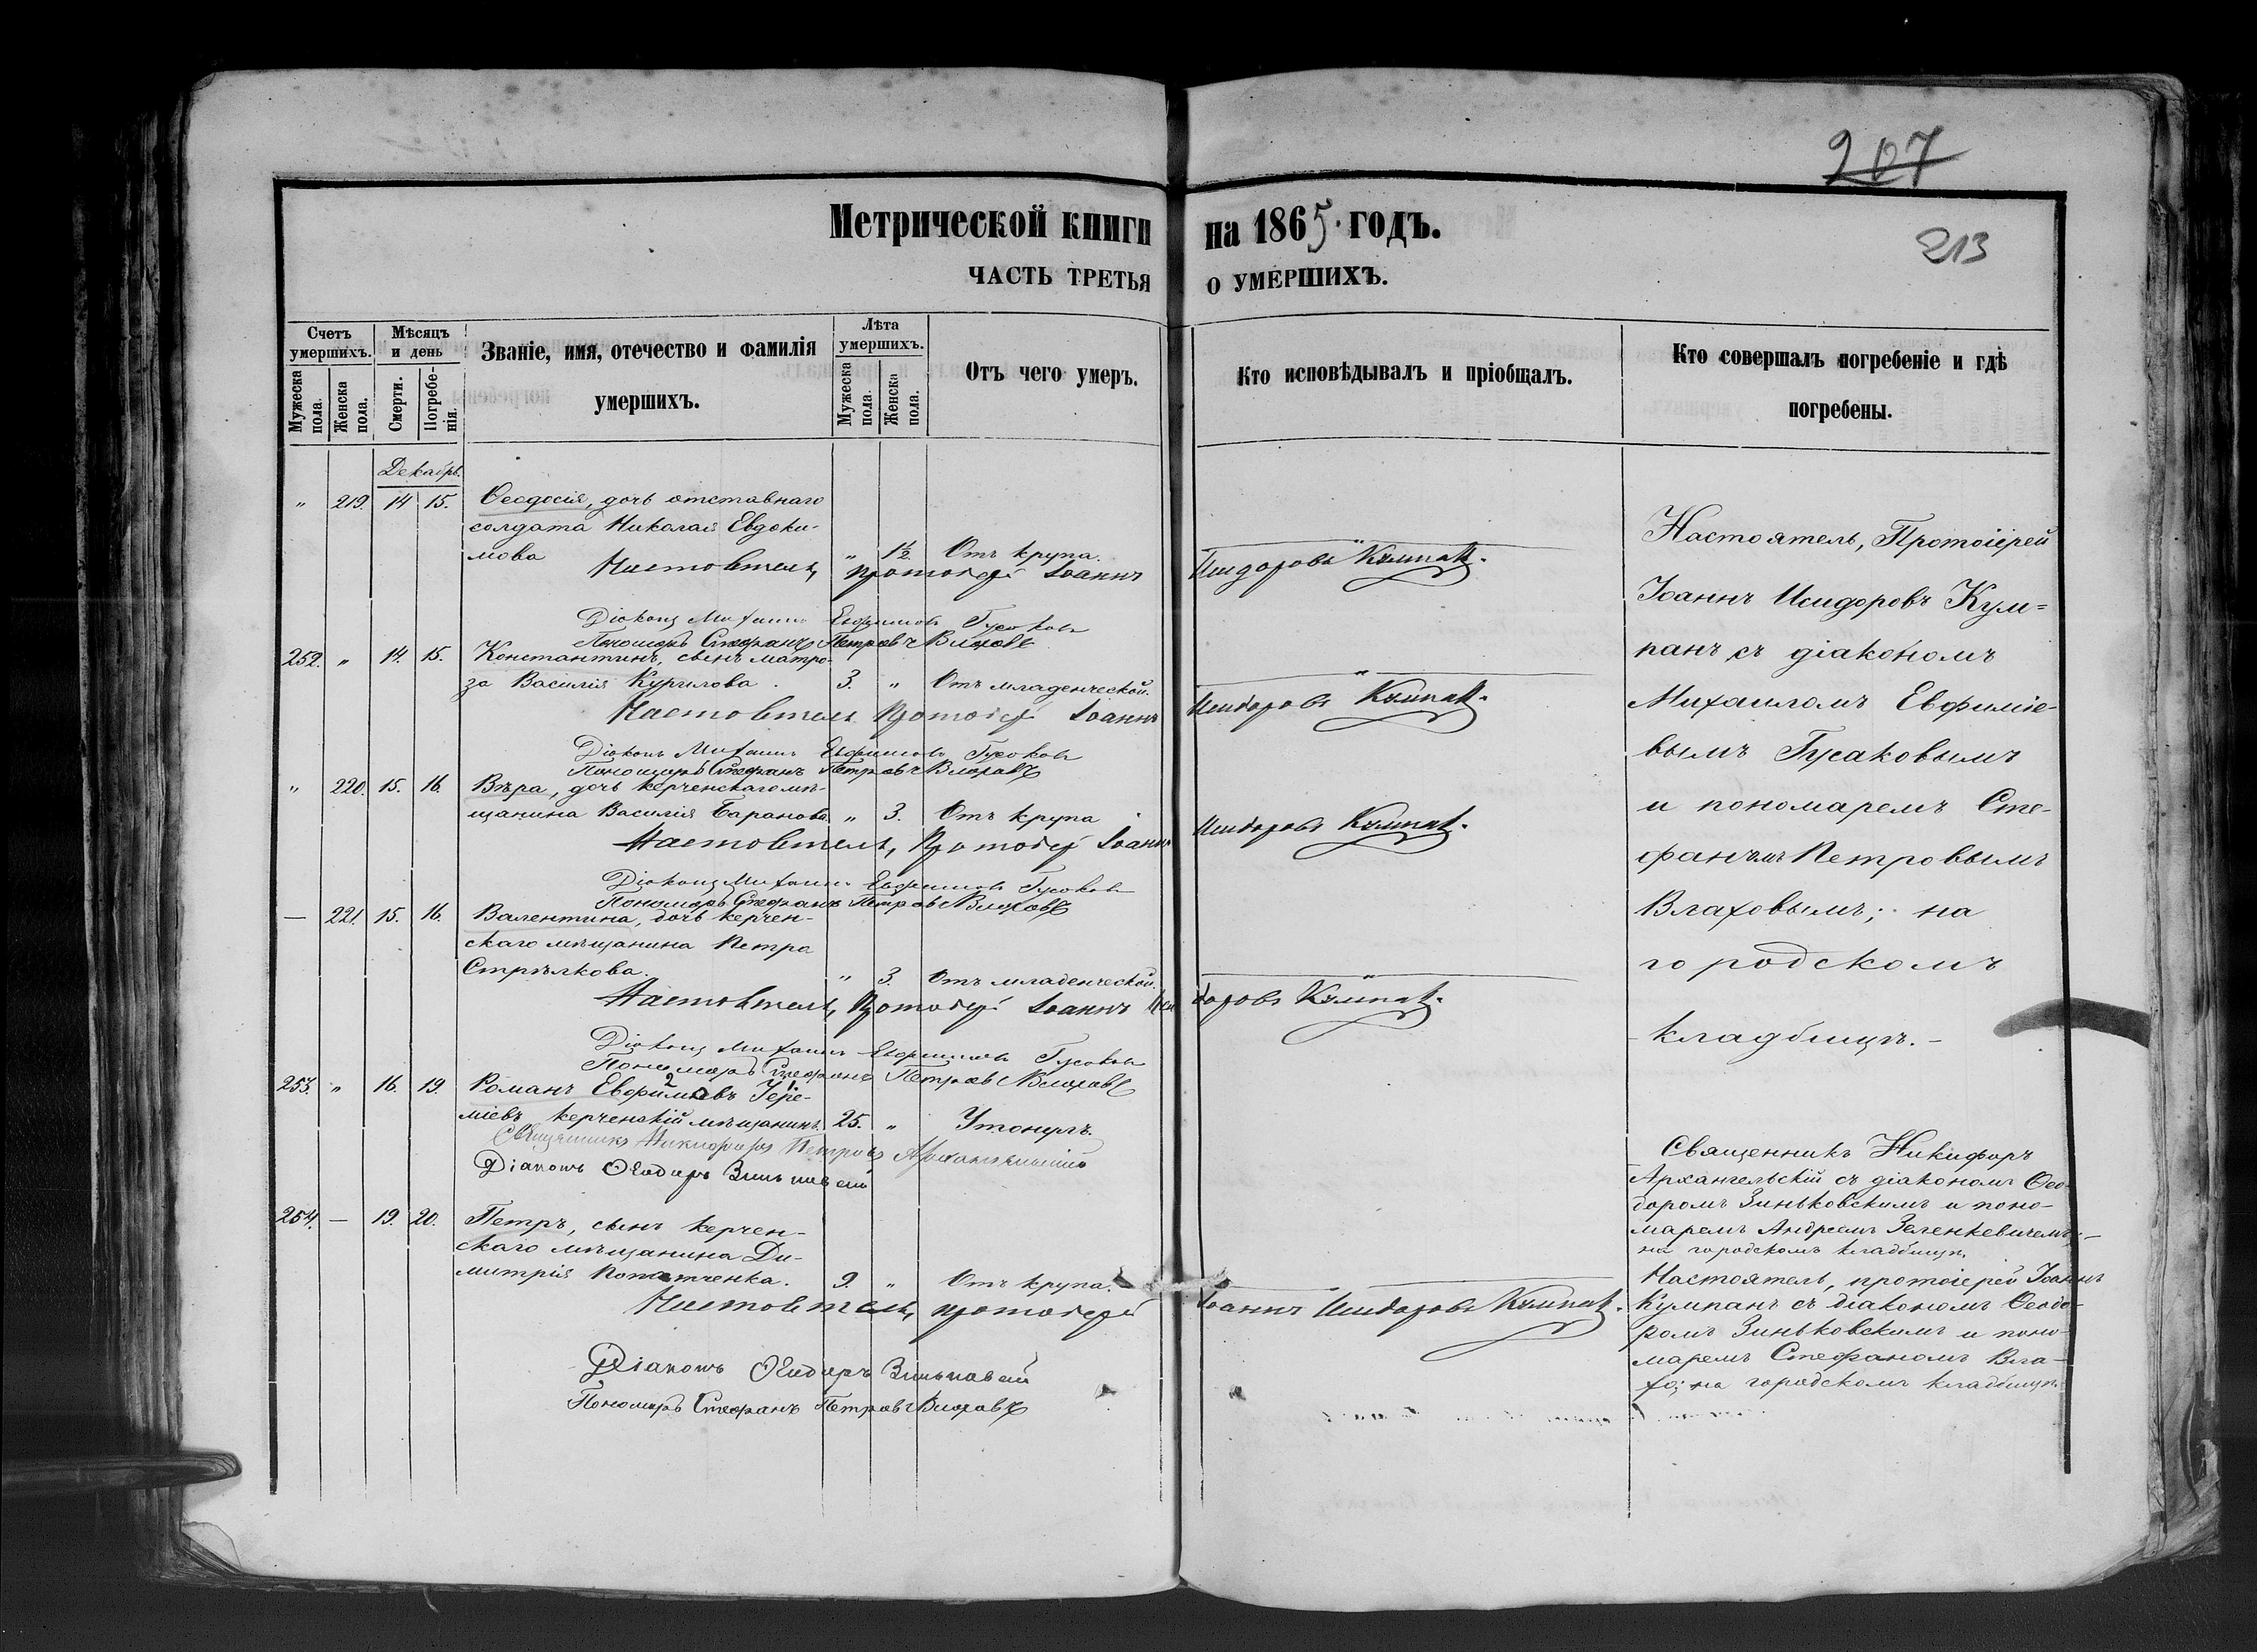 207
213
Метрической книги на 1865 годъ.
ЧАСТЬ ТРЕТЬЯ О УМЕРШИХЪ.
Счетъ умершихъ.
Мужеска пола.
Женска пола.
Мѣсяцъ и день
Смерти.
Погребенія.
Званіе, имя, отечество и фамилія умершихъ.
Лѣта умершихъ.
Мужеска пола.
Женска пола.
Отъ чего умеръ.
Кто исповѣдывалъ и пріобщалъ.
Кто совершалъ погребеніе и гдѣ погребены.
Декабрь.
" 219. 14 15. Ѳеодосія, дочь отставнаго
солдата Николая Евдоки-
мова " 1½ Отъ крупа.
Настоятель, протоіерей Іоаннъ Исидоровъ Кумпанъ.
Діаконъ Михаилъ Евфимовъ Гусаковъ
Пономарь Стефанъ Петровъ Влаховъ
252. " 14. 15. Константинъ, сынъ матро-
за Василія Курилова. 3. " Отъ младенческой.
Настоятель Протоіерей Іоаннъ Исидоровъ Кумпанъ.
Діаконъ Михаилъ Евфимовъ Гусаковъ
Пономарь Стефанъ Петровъ Влаховъ
" 220. 15. 16. Вѣра, дочь керченскаго мѣ-
щанина Василія Баранова. " 3. Отъ крупа
Настоятель, Протоіерей Іоаннъ Исидоровъ Кумпанъ.
Діаконъ Михаилъ Евфимовъ Гусаковъ
Пономарь Стефанъ Петровъ Влаховъ
— 221. 15. 16. Валентина, дочь керчен-
скаго мѣщанина Петра
Стрѣлкова. " 3. Отъ младенческой.
Настоятель, Протоіерей Іоаннъ Исидоровъ Кумпанъ.
Діаконъ Михаилъ Евфимовъ Гусаковъ
Пономарь Стефанъ Петровъ Влаховъ
253. " 16. 19. Романъ Евфимовъ Іере-
міевъ керченскій мѣщанинъ. 25. " Утонулъ.
Священникъ Никифоръ Петровъ Архангельскій
Діаконъ Ѳеодоръ Зиньковскій
254. — 19. 20. Петръ, сынъ керчен-
скаго мѣщанина Ди-
митрія Потатченка. 9. " Отъ крупа.
Настоятель, протоіерей Іоаннъ Исидоровъ Кумпанъ.
Діаконъ Ѳеодоръ Зиньковскій
Пономарь Стефанъ Петровъ Влаховъ
Настоятель, Протоіерей
Іоаннъ Исидоровъ Кум=
панъ съ діакономъ
Михаиломъ Евфиміе-
вымъ Гусаковымъ
и пономаремъ Сте-
фаномъ Петровымъ
Влаховымъ; на
городскомъ
кладбищѣ.-
Священникъ Никифоръ
Архангельскій съ діакономъ Ѳео-
доромъ Зиньковскимъ и поно-
маремъ Андреемъ Зеленкевичемъ; —
на городскомъ кладбищѣ.
Настоятель, протоіерей Іоаннъ
Кумпанъ съ діакономъ Ѳеодо-
ромъ Зиньковскимъ и поно-
маремъ Стефаномъ Вла-
хо; на городскомъ кладбищѣ.